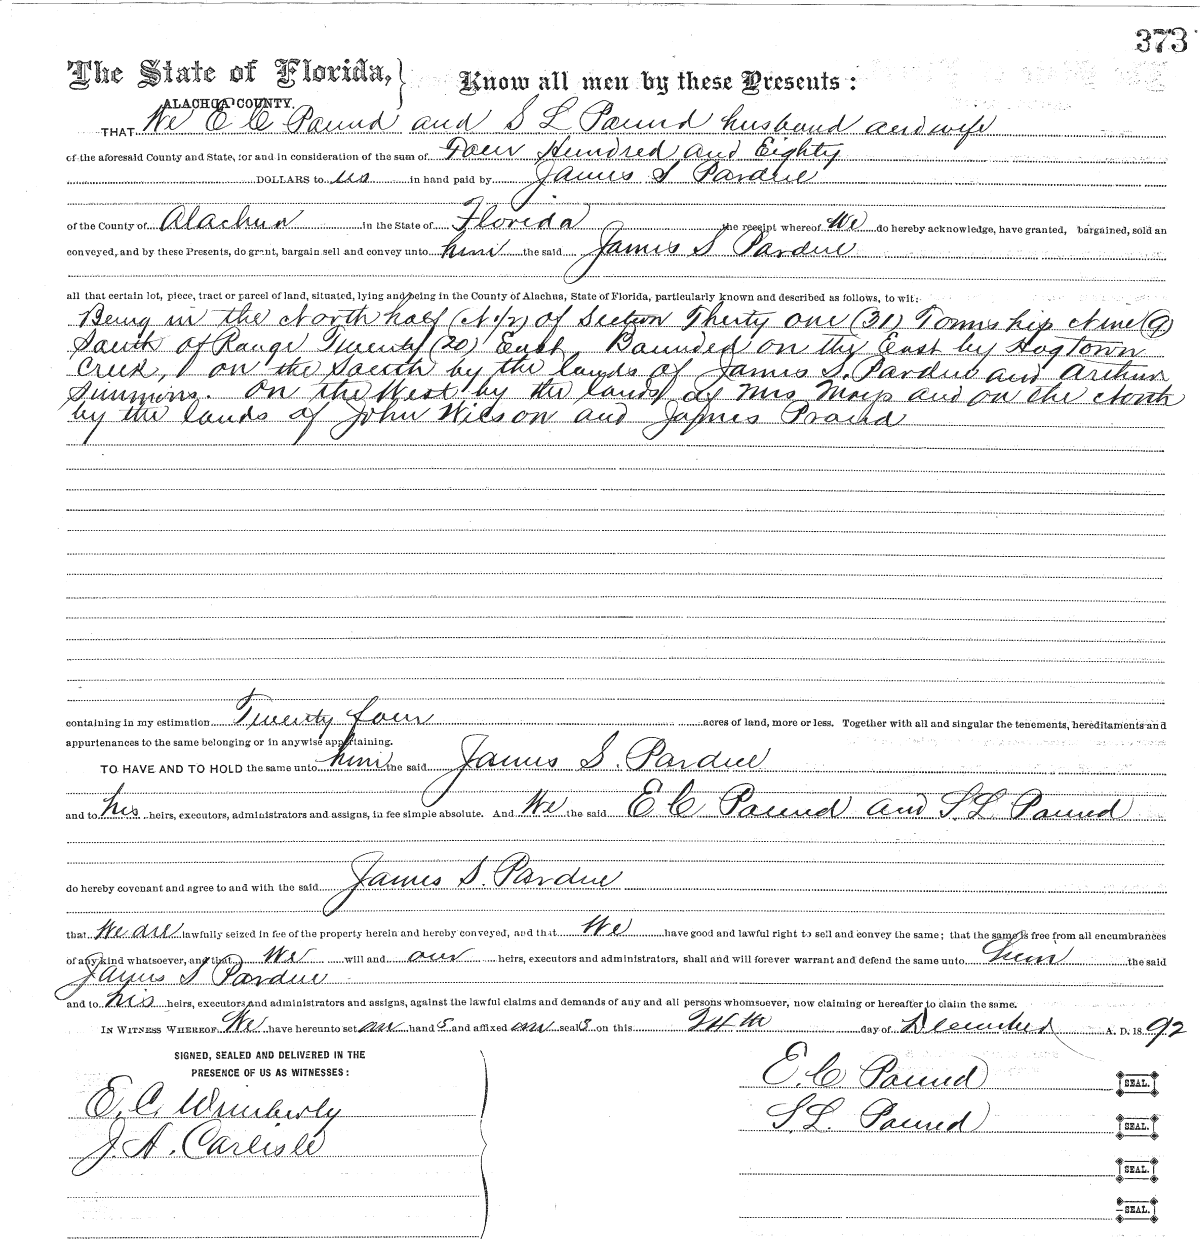 373
The State of Florida,} Know all men by these Presents:
ALACHUA COUNTY.
THAT We E C Pound and S L Pound husband and wife
of the aforesaid County and State, for and in consideration of the sum of Four Hundred and Eighty
DOLLARS to us in hand paid by James S Pardue
of the County of Alachua in the State of Florida the receipt whereof We do hereby acknowledge, have granted, bargained, sold an
conveyed, and by these Presents, do grant, bargain sell and convey unto him the said James S Pardue
all that certain lot, piece, tract or parcel of land, situated, lying and being in the County of Alachua, State of Florida, particularly known and described as follows, to wit:
Being in the North half (N 1/2) of Section Thirty one (31) Township Nine (9)
South of Range Twenty (20) East Bounded on the East by Hogtown
Creek, on the South by the lands of James S. Pardue and Arthur
Simmons. On the West by the lands of Mrs and on the North
by the lands of John Wilson and James
containing in my estimation Twenty four acres of land, more or less. Together with all and singular the tenements, hereditaments and
appurtenances to the same belonging or in anywise appertaining.
TO HAVE AND TO HOLD the same unto him the said James S. Pardue
and to his heirs, executors, administrators and assigns, in fee simple absolute. And We the said E C Pound and S. L Pound
do hereby covenant and agree to and with the said James S. Pardue
that We are lawfully seized in fee of the property herein and hereby conveyed, and that We have good and lawful right to sell and convey the same; that the same is free from all encumbrances
of any kind whatsoever, and that We will and our heirs, executors and administrators, shall and will forever warrant and defend the same unto him the said
James S Pardue
and to his heirs, executors and administrators and assigns, against the lawful claims and demands of any and all persons whomsoever, now claiming or hereafter to claim the same.
IN WITNESS WHEREOF We have hereunto set our hand s and affixed our seal s on this 24th day of December A. D. 1892
SIGNED, SEALED AND DELIVERED IN THE
PRESENCE OF US AS WITNESSES:
E. C Pound SEAL.
E. C. Wimberly
S. L. Pound SEAL.
J. A. Carlisle
SEAL.
SEAL.